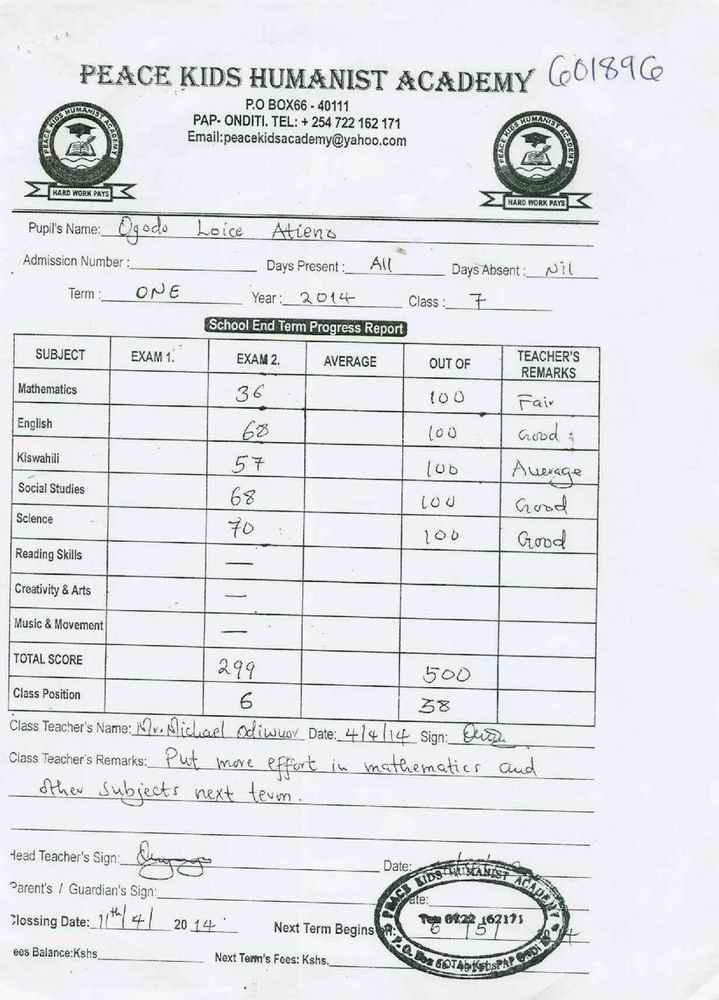 G01896
PEACE KIDS HUMANIST ACADEMY
P.O BOX66 - 40111
PAP- ONDITI. TEL: + 254 722 162 171
Email:peacekidsacademy@yahoo.com
PEACE KIDS HUMANIST ACADEMY
HARD WORK PAYS
PEACE KIDS HUMANIST ACADEMY
HARD WORK PAYS
Pupil's Name: Ogodo Loice Atieno
Admission Number : Days Present : All Days Absent : Nil
Term : ONE Year : 2014 Class : 7
School End Term Progress Report
SUBJECT EXAM 1. EXAM 2. AVERAGE OUT OF TEACHER'S REMARKS
Mathematics 36 100 Fair
English 68 100 Good
Kiswahili 57 100 Average
Social Studies 68 100 Good
Science 70 100 Good
Reading Skills —
Creativity & Arts —
Music & Movement —
TOTAL SCORE 299 500
Class Position 6 38
Class Teacher's Name: Mr. Michael Odiwuor Date: 4/4/14 Sign:
Class Teacher's Remarks: Put more effort in mathematics and
other subjects next term.
Head Teacher's Sign: Date:
Parent's / Guardian's Sign:
Closing Date: 11th/4/ 2014 Next Term Begins 6/5/
ees Balance:Kshs. Next Term's Fees: Kshs.
PEACE KIDS HUMANIST ACADEMY
Tel: 0722 162171